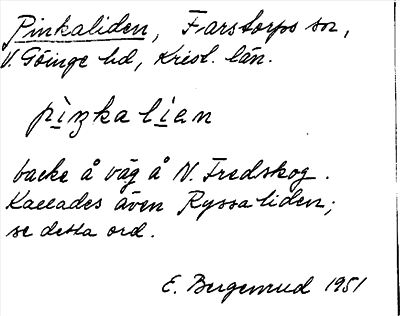 Pinkaliden, Farstorps sn,
V. Göinge hd, Krist. län.
piŋkalian
backe å väg å N. Fredskog.
Kallades även Ryssaliden;
se detta ord.
E. Bergemrud 1951